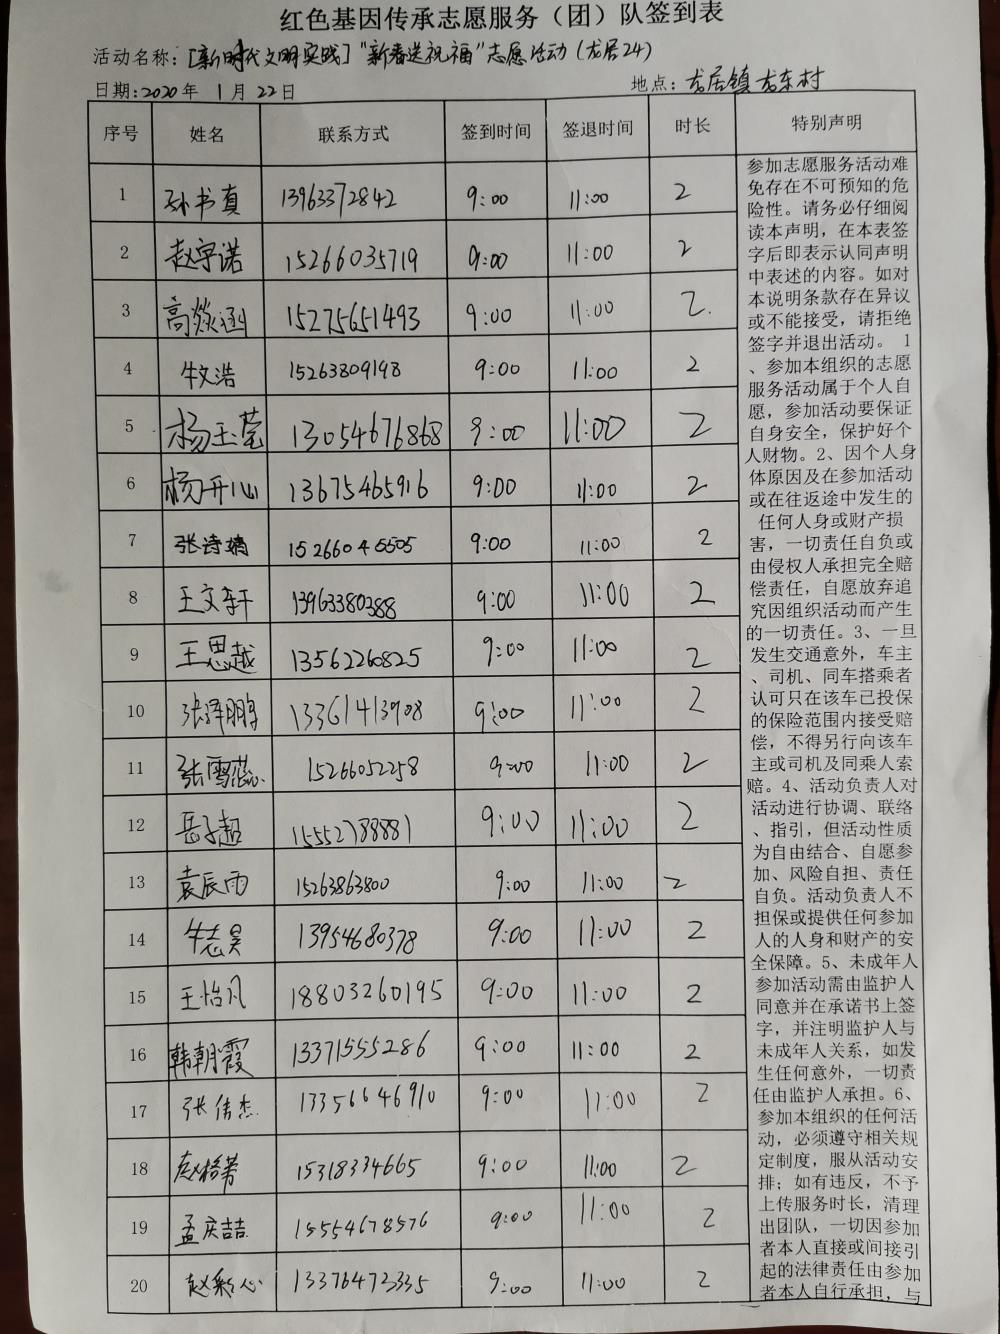 红色基因传承志愿服务（团）队签到表
活动名称：[新时代文明实践]"新春送祝福"志愿活动（龙居24）
日期:2020年 1月22日 地点：龙居镇龙东村
序号 姓名 联系方式 签到时间 签退时间 时长 特别声明
1 孙书真 13963372842 9:00 11:00 2
2 赵宇诺 15266035719 9:00 11:00 2
3 高燚涵 15275651493 9:00 11:00 2
4 牛文浩 15263809198 9:00 11:00 2
5 杨玉莹 13054676868 9:00 11:00 2
6 杨开心 13675465916 9:00 11:00 2
7 张诗婧 15266045505 9:00 11:00 2
8 王文轩 13963380388 9:00 11:00 2
9 王思越 13562260825 9:00 11:00 2
10 张泽鹏 13361413908 9:00 11:00 2
11 张雪蕊 15266052258 9:00 11:00 2
12 岳子超 15552788881 9:00 11:00 2
13 袁辰雨 15263863800 9:00 11:00 2
14 牛志昊 13954680378 9:00 11:00 2
15 王怡凡 18803260195 9:00 11:00 2
16 韩朝霞 13371555286 9:00 11:00 2
17 张伟杰 13356646910 9:00 11:00 2
18 15318334665 9:00 11:00 2
19 孟庆喆 15554678576 9:00 11:00 2
20 赵彩心 13376472335 9:00 11:00 2
参加志愿服务活动难
免存在不可预知的危
险性。请务必仔细阅
读本声明，在本表签
字后即表示认同声明
中表述的内容。如对
本说明条款存在异议
或不能接受，请拒绝
签字并退出活动。 1
、参加本组织的志愿
服务活动属于个人自
愿，参加活动要保证
自身安全，保护好个
人财物。2、因个人身
体原因及在参加活动
或在往返途中发生的
任何人身或财产损
害，一切责任自负或
由侵权人承担完全赔
偿责任，自愿放弃追
究因组织活动而产生
的一切责任。3、一旦
发生交通意外，车主
、司机、同车搭乘者
认可只在该车已投保
的保险范围内接受赔
偿，不得另行向该车
主或司机及同乘人索
赔。4、活动负责人对
活动进行协调、联络
、指引，但活动性质
为自由结合、自愿参
加、风险自担、责任
自负。活动负责人不
担保或提供任何参加
人的人身和财产的安
全保障。5、未成年人
参加活动需由监护人
同意并在承诺书上签
字，并注明监护人与
未成年人关系，如发
生任何意外，一切责
任由监护人承担。6、
参加本组织的任何活
动，必须遵守相关规
定制度，服从活动安
排；如有违反，不予
上传服务时长，清理
出团队，一切因参加
者本人直接或间接引
起的法律责任由参加
者本人自行承担，与